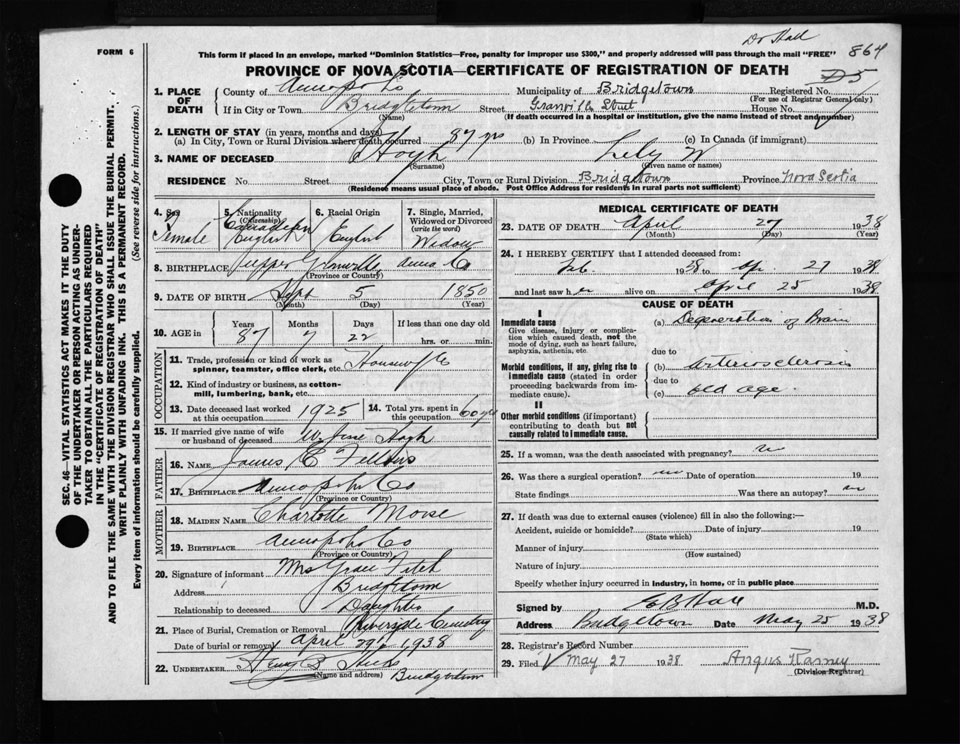 Dr Hall
FORM 6
This form if placed in an envelope, marked "Dominion Statistics—Free, penalty for improper use $300," and properly addressed will pass through the mail "FREE" 864
PROVINCE OF NOVA SCOTIA—CERTIFICATE OF REGISTRATION OF DEATH
1. PLACE OF DEATH County of Annapolis Municipality of Bridgetown Registered No.
(For use of Registrar General only)
If in City or Town Bridgetown Street Granville Street House No.
(Name) (If death occurred in a hospital or institution, give the name instead of street and number)
2. LENGTH OF STAY (in years, months and days)
(a) In City, Town or Rural Division where death occurred 87 yrs (b) In Province (c) In Canada (if immigrant)
3. NAME OF DECEASED Hoyt Lily W
(Surname) (Given name or names)
RESIDENCE No. Street City, Town or Rural Division Bridgetown Province Nova Scotia
(Residence means usual place of abode. Post Office Address for residents in rural parts not sufficient)
4. Sex Female
5. Nationality (Citizenship) Canadian English
6. Racial Origin English
7. Single, Married, Widowed or Divorced (write the word) Widow
8. BIRTHPLACE Upper Granville Anna Co
(Province or Country)
9. DATE OF BIRTH Sept 5 1850
(Month) (Day) (Year)
10. AGE in Years Months Days If less than one day old
87 7 22 hrs. or min.
OCCUPATION
11. Trade, profession or kind of work as spinner, teamster, office clerk, etc. Housewife
12. Kind of industry or business, as cotton-mill, lumbering, bank, etc.
13. Date deceased last worked at this occupation 1925 14. Total yrs. spent in this occupation 60 yrs
15. If married give name of wife or husband of deceased Hoyt
FATHER
16. NAME James E Fellows
17. BIRTHPLACE Annapolis Co
(Province or Country)
MOTHER
18. MAIDEN NAME Charlotte Morse
19. BIRTHPLACE Annapolis Co
(Province or Country)
20. Signature of informant Mrs Grace Fitch
Address Bridgetown
Relationship to deceased Daughter
21. Place of Burial, Cremation or Removal Riverside Cemetery
Date of burial or removal April 29, 1938
22. UNDERTAKER
(Name and address) Bridgetown
MEDICAL CERTIFICATE OF DEATH
23. DATE OF DEATH April 27 1938
(Month) (Day) (Year)
24. I HEREBY CERTIFY that I attended deceased from:
Feb. 1938 to Apr 27 1938
and last saw her alive on April 25 1938
CAUSE OF DEATH
I
Immediate cause
Give disease, injury or complication which caused death, not the mode of dying, such as heart failure, asphyxia, asthenia, etc.
(a) Degeneration of Brain
due to
Morbid conditions, if any, giving rise to immediate cause (stated in order proceeding backwards from immediate cause).
(b) arteriosclerosis
due to
(c) old age.
II
Other morbid conditions (if important) contributing to death but not causally related to immediate cause.
25. If a woman, was the death associated with pregnancy? no
26. Was there a surgical operation? no Date of operation 19
State findings Was there an autopsy? no
27. If death was due to external causes (violence) fill in also the following:—
Accident, suicide or homicide? Date of injury 19
(State which)
Manner of injury
(How sustained)
Nature of injury
Specify whether injury occurred in industry, in home, or in public place
Signed by M.D.
Address Bridgetown Date May 25 1938
28. Registrar's Record Number
29. Filed May 27 1938 Angus Ramey
(Division Registrar)
SEC. 46—VITAL STATISTICS ACT MAKES IT THE DUTY
OF THE UNDERTAKER OR PERSON ACTING AS UNDER-
TAKER TO OBTAIN ALL THE PARTICULARS REQUIRED
IN THE "CERTIFICATE OF REGISTRATION OF DEATH"
AND TO FILE THE SAME WITH THE DIVISION REGISTRAR WHO SHALL ISSUE THE BURIAL PERMIT.
WRITE PLAINLY WITH UNFADING INK. THIS IS A PERMANENT RECORD.
Every item of information should be carefully supplied. (See reverse side for instructions.)